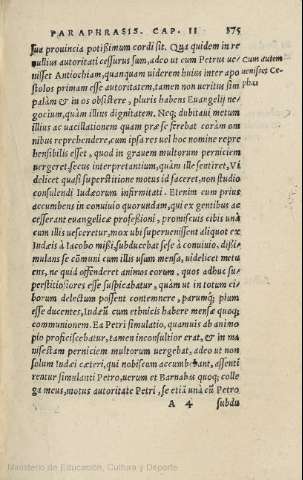 PARAPHRASIS. CAP. II 875
sua prouincia potißimum cordi sit. Qua quidem in re
nullius autoritati cessurus sum, adeo ut cum Petrus ue
nisset Antiochiam, quanquam uiderem huius inter apo
stolos primam esse autoritatem, tamen non ueritus sim
palàm & in os obsistere, pluris habens Euangelij ne-
gocium, quàm illius dignitatem. Neq; dubitaui metum
illius ac uacillationem quam præ se ferebat coràm om
nibus reprehendere, cum ipsa res uel hoc nomine repre
hensibilis esset, quod in grauem multorum perniciem
uergeret secus interpretantium, quàm ille sentiret. Vi
delicet quasi superstitione notus id faceret, non studio
consulendi Iudæorum infirmitati. Etenim cum prius
accumbens in conuiuio quorundam, qui ex gentibus ac
cesserant euangelicæ profeßioni, promiscuis cibis unà
cum illis uesceretur, mox ubi superuenissent aliquot ex
Iudæis à Iacobo mißi, subducebat sese à conuiuio, dißi-
mulans se cõmuni cum illis usum mensa, uidelicet metu
ens, ne quid offenderet animos eorum, quos adhuc su-
perstitiosiores esse suspicabatur, quàm ut in totum ci-
borum delectum possent contemnere, parumq; pium
esse ducentes, Iudæũ cum ethnicis habere mensæ quoq;
communionem. Ea Petri simulatio, quamuis ab animo
pio proficiscebatur, tamen inconsultior erat, & in ma
nifestam perniciem multorum uergebat, adeo ut non
solum Iudæi cæteri, qui nobiscum accumbebant, assenti
rentur simulanti Petro, uerum et Barnabas quoq; colle
ga meus, motus autoritate Petri, se etiã unà cũ Petro
A 4 subdu
Cum autem
uenisset Ce-
phas
Ministerio de Educación, Cultura y Deporte